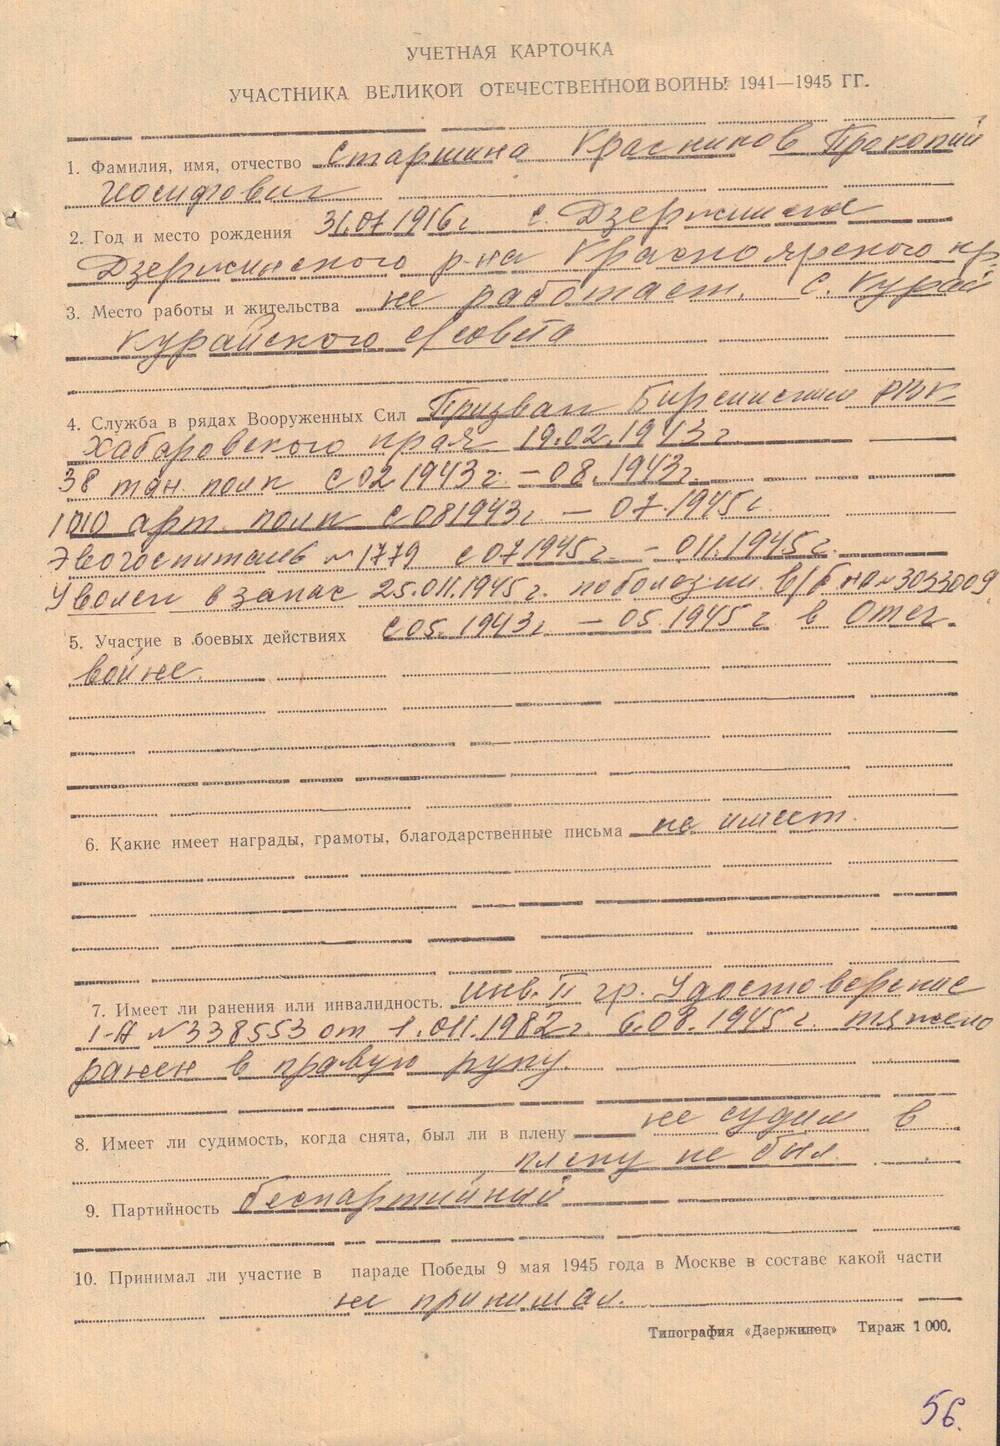 УЧЕТНАЯ КАРТОЧКА
УЧАСТНИКА ВЕЛИКОЙ ОТЕЧЕСТВЕННОЙ ВОЙНЫ 1941—1945 ГГ.
1. Фамилия, имя, отчество старшина Красников Прокопий
Иосифович
2. Год и место рождения 31.07.1916 г. с. Дзержинское
Дзержинского р-на Красноярского кр.
3. Место работы и жительства не работает. с. Курай
Курайского с/совета
4. Служба в рядах Вооруженных Сил Призван Бирским РВК
Хабаровского края 19.02.1943 г
38 тан. полк с 02.1943 г. — 08.1943 г.
1010 арт. полк с 08 1943 г — 07.1945 г.
Эвогоспиталь № 1779 с 07 1945 г — 011.1945 г.
Уволен в запас 25.011.1945 г. по болезни в/б на № 3033009
5. Участие в боевых действиях с 05.1943 г — 05.1945 г в Отеч.
войне.
6. Какие имеет награды, грамоты, благодарственные письма не имеет.
7. Имеет ли ранения или инвалидность. инв. II гр. Удостоверение
1-А № 338553 от 1.011.1982 г. 6.08.1945 г. тяжело
ранен в правую руку.
8. Имеет ли судимость, когда снята, был ли в плену не судим в
плену не был.
9. Партийность беспартийный
10. Принимал ли участие в параде Победы 9 мая 1945 года в Москве в составе какой части
не принимал.
Типография «Дзержинец» Тираж 1 000.
56.